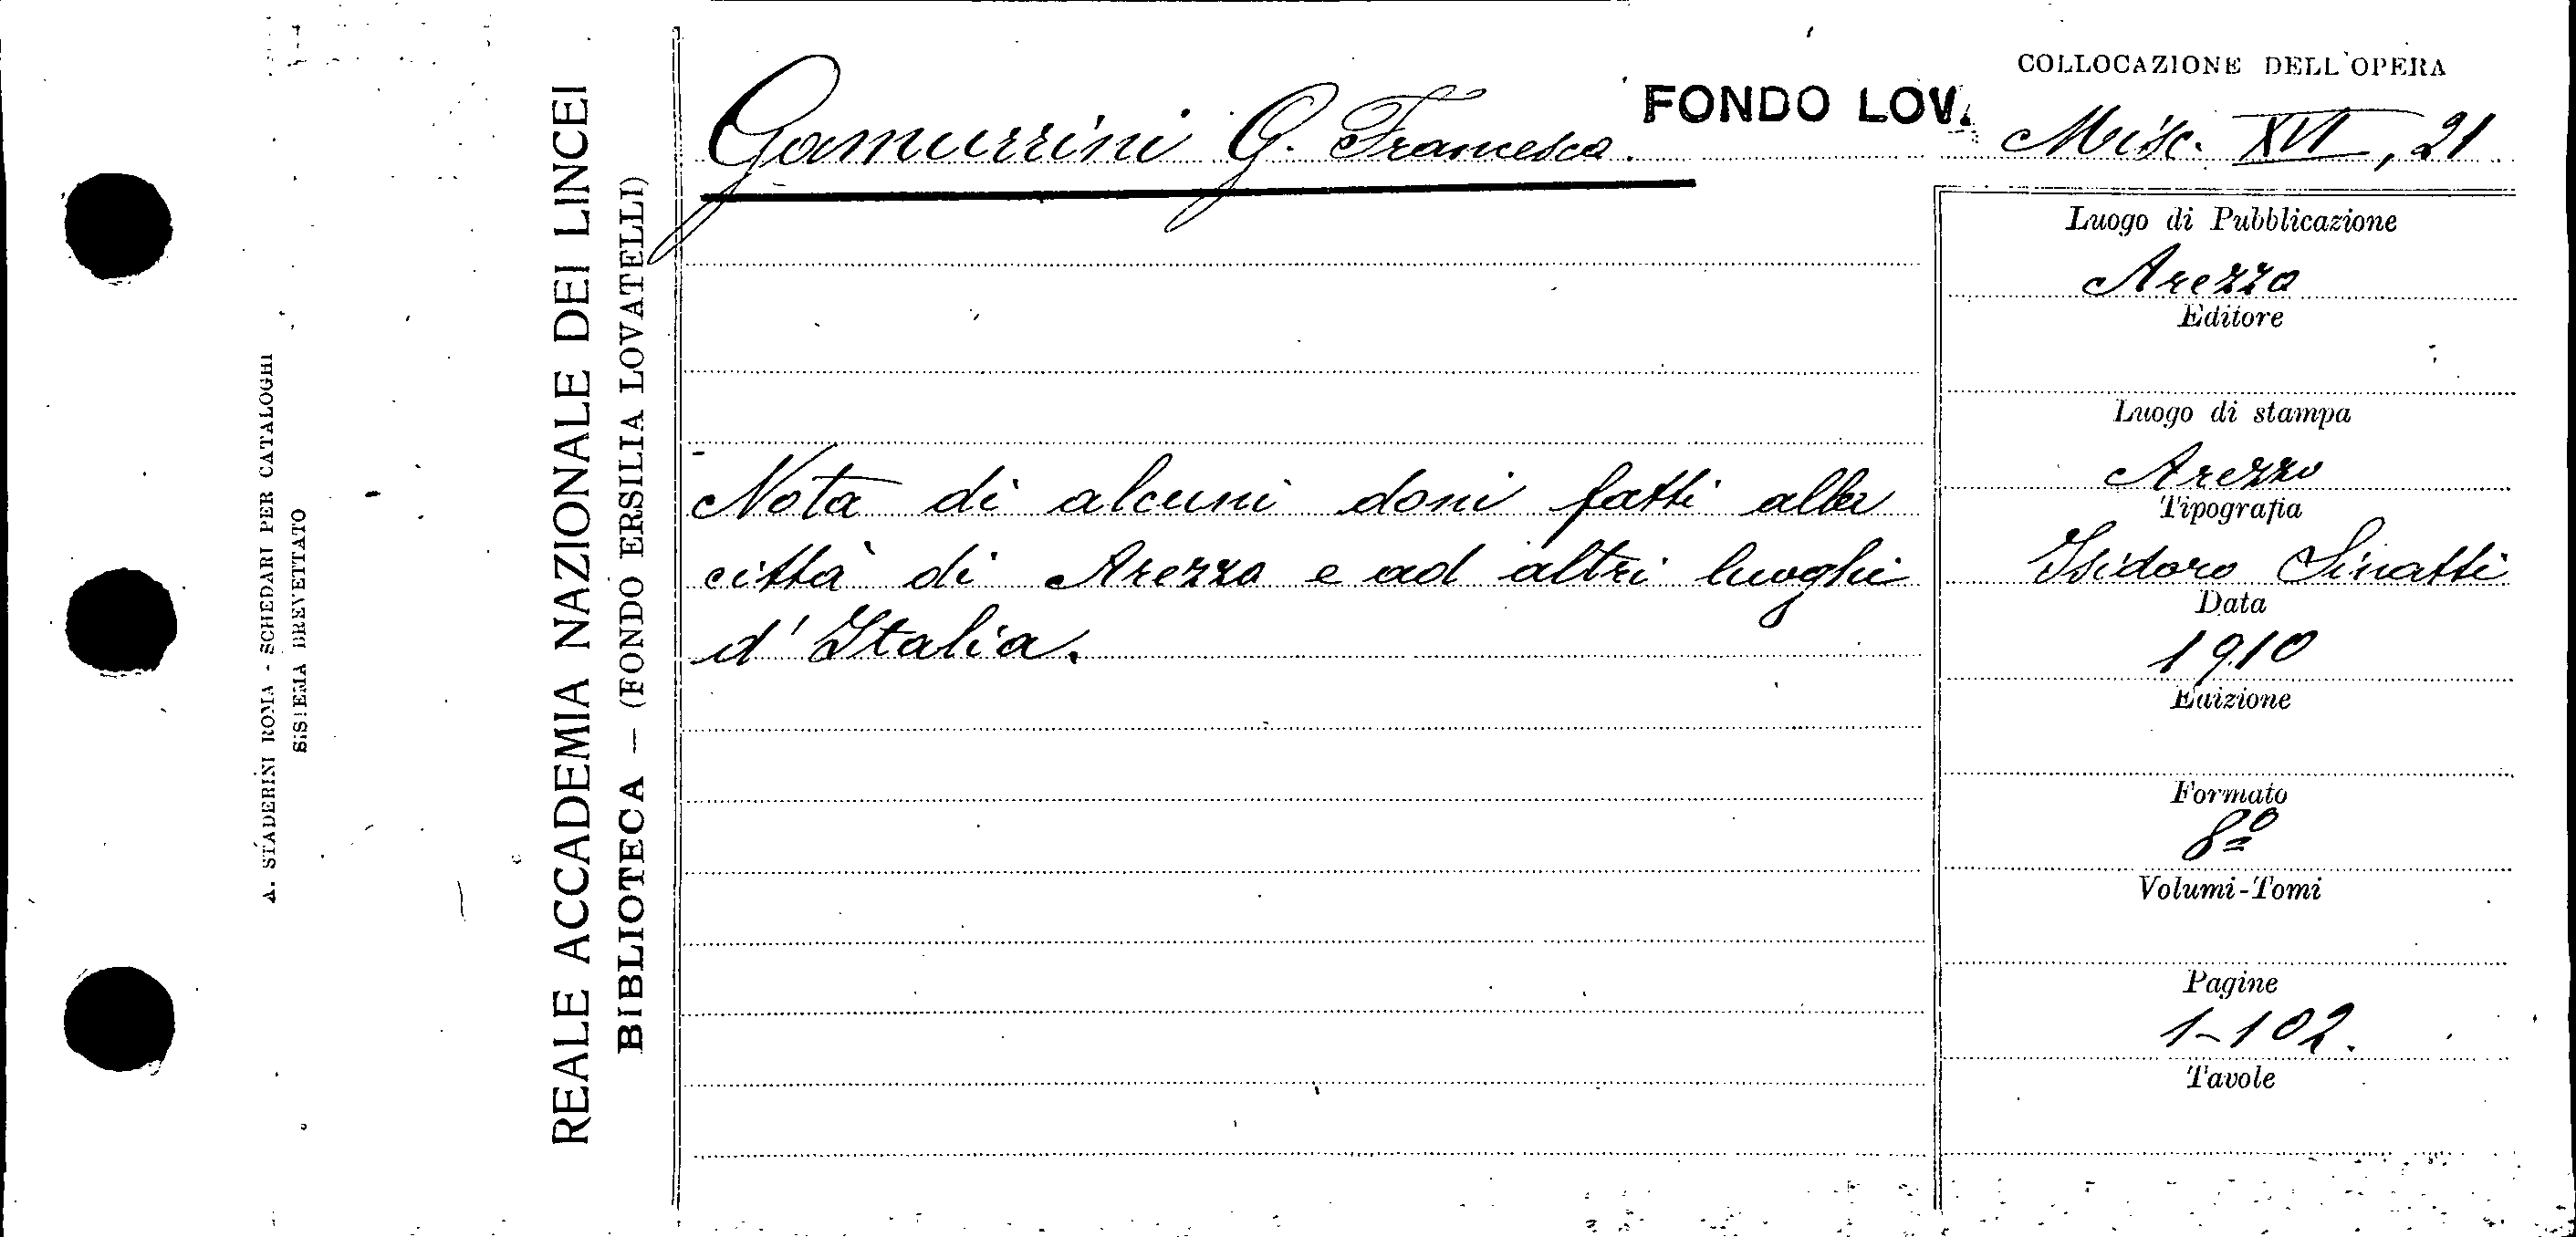 A. STADERINI ROMA - SCHEDARI PER CATALOGHI
SISTEMA BREVETTATO
REALE ACCADEMIA NAZIONALE DEI LINCEI
BIBLIOTECA — (FONDO ERSILIA LOVATELLI)
Gamurrini G. Francesco.
FONDO LOV.
COLLOCAZIONE DELL'OPERA
Misc. XVI, 21
Nota di alcuni doni fatti alla
città di Arezzo e ad altri luoghi
d'Italia.
Luogo di Pubblicazione
Arezzo
Editore
Luogo di stampa
Arezzo
Tipografia
Isidoro Sinatti
Data
1910
Edizione
Formato
8º
Volumi-Tomi
Pagine
1-102.
Tavole